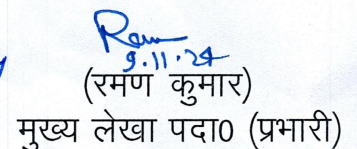 Ram
9.11.24
(रमण कुमार)
मुख्य लेखा पदा0 (प्रभारी)